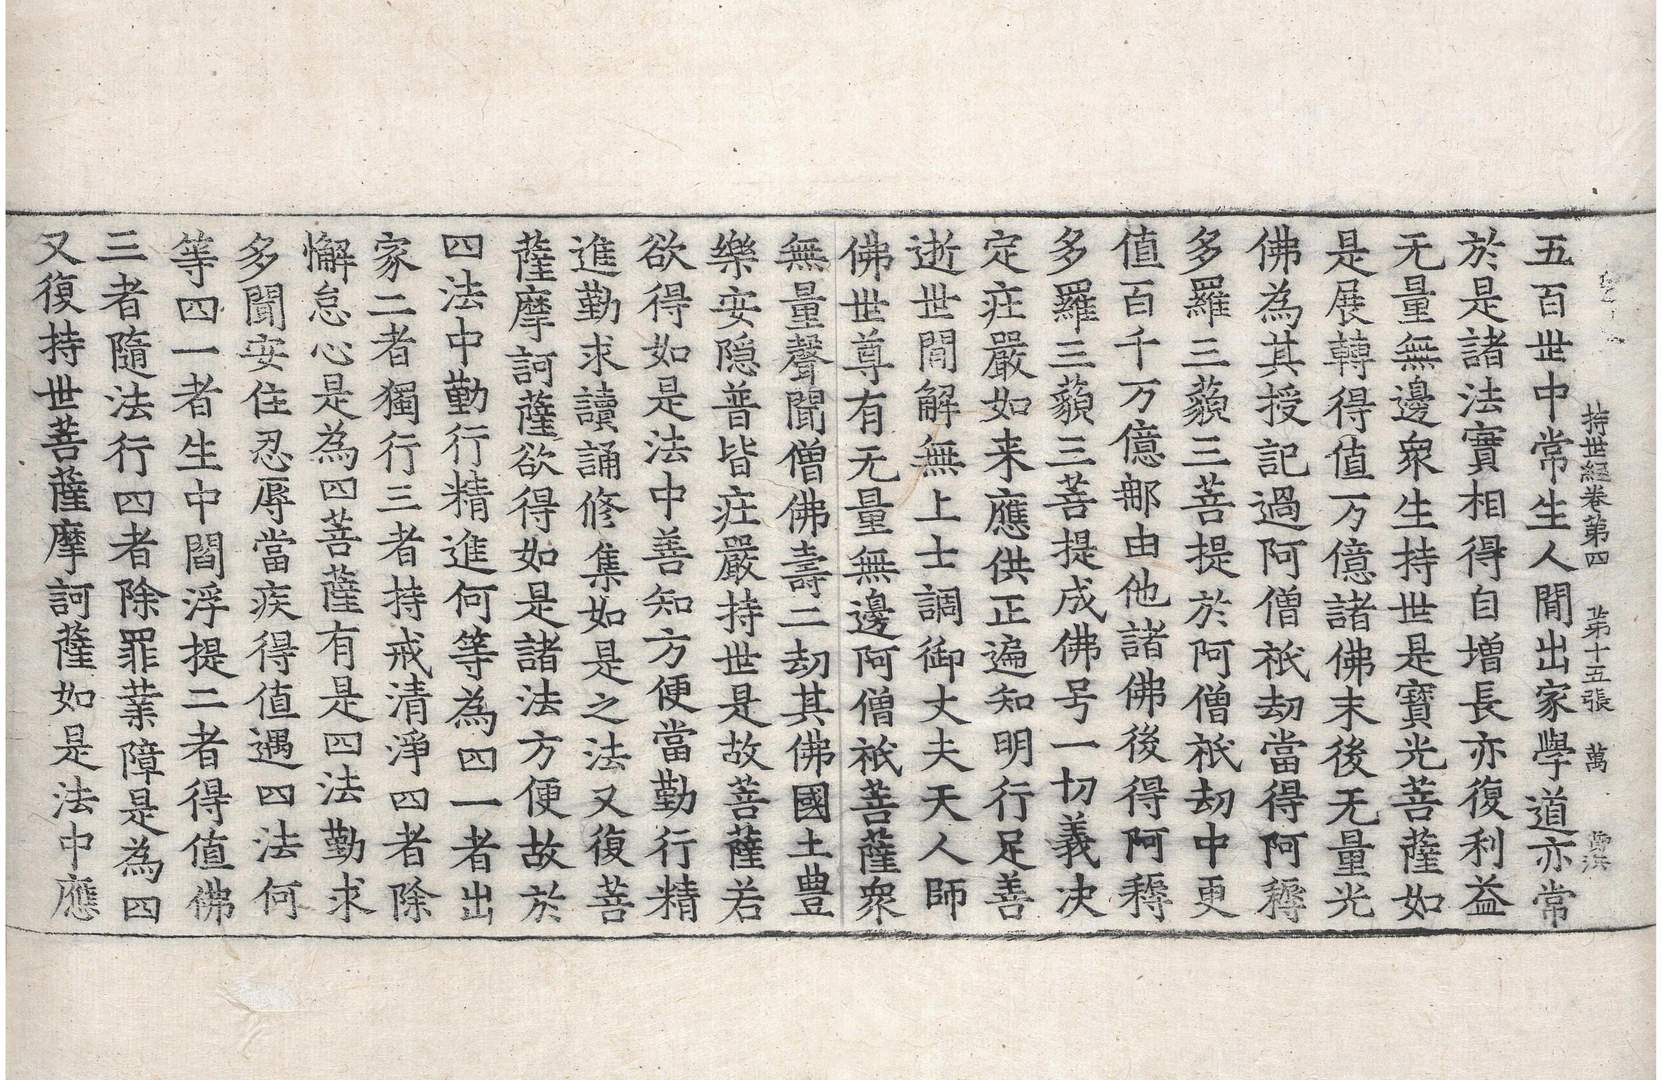 持世經卷第四 第十五張 萬
五百世中常生人間出家學道亦常
於是諸法實相得自增長亦復利益
无量無邊衆生持世是寶光菩薩如
是展轉得值万億諸佛末後无量光
佛為其授記過阿僧祇劫當得阿耨
多羅三藐三菩提於阿僧祇劫中更
值百千万億那由他諸佛後得阿耨
多羅三藐三菩提成佛号一切義决
定庄嚴如来應供正遍知明行足善
逝世間解無上士調御丈夫天人師
佛世尊有无量無邊阿僧祇菩薩衆
無量聲聞僧佛壽二劫其佛國土豊
樂安隠普皆庄嚴持世是故菩薩若
欲得如是法中善知方便當勤行精
進勤求讀誦修集如是之法又復菩
薩摩訶薩欲得如是諸法方便故於
四法中勤行精進何等為四一者出
家二者獨行三者持戒清淨四者除
懈怠心是為四菩薩有是四法勤求
多聞安住忍辱當疾得值遇四法何
等四一者生中閻浮提二者得值佛
三者隨法行四者除罪業障是為四
又復持世菩薩摩訶薩如是法中應